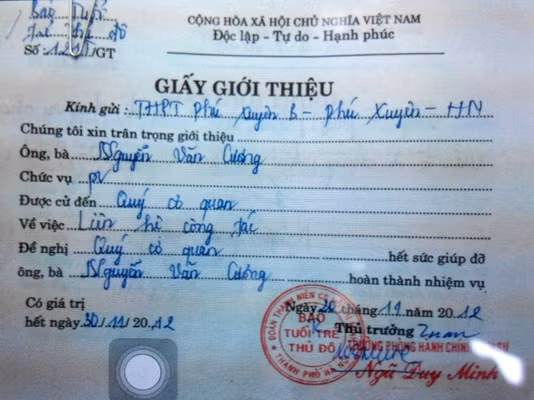 Báo Tuổi
trẻ thủ đô
CỘNG HÒA XÃ HỘI CHỦ NGHĨA VIỆT NAM
Độc lập - Tự do - Hạnh phúc
Số :12/GT
GIẤY GIỚI THIỆU
Kính gửi : THPT Phú Xuyên B - Phú Xuyên - HN
Chúng tôi xin trân trọng giới thiệu
Ông, bà Nguyễn Văn Cương
Chức vụ pv
Được cử đến Quý cơ quan
Về việc Liên hệ công tác
Đề nghị Quý cơ quan hết sức giúp đỡ
ông, bà Nguyễn Văn Cương hoàn thành nhiệm vụ
Có giá trị
hết ngày 30/11/2012
Ngày 20 tháng 11 năm 2012
Thủ trưởng
BÁO
TUỔI TRẺ
THỦ ĐÔ
TRƯỞNG PHÒNG HÀNH CHÍNH
Ngã Duy Minh